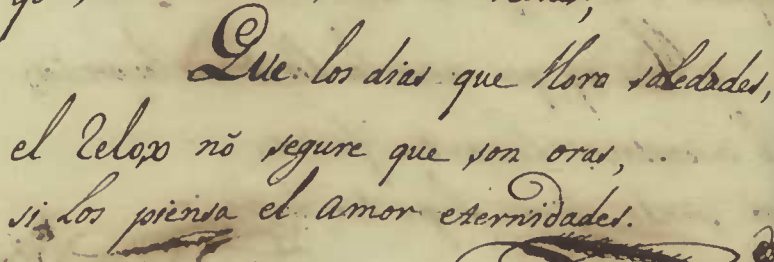 Que los dias que llora soledades,
el Relox nõ segure que son oras,
si los piensa el amor eternidades.